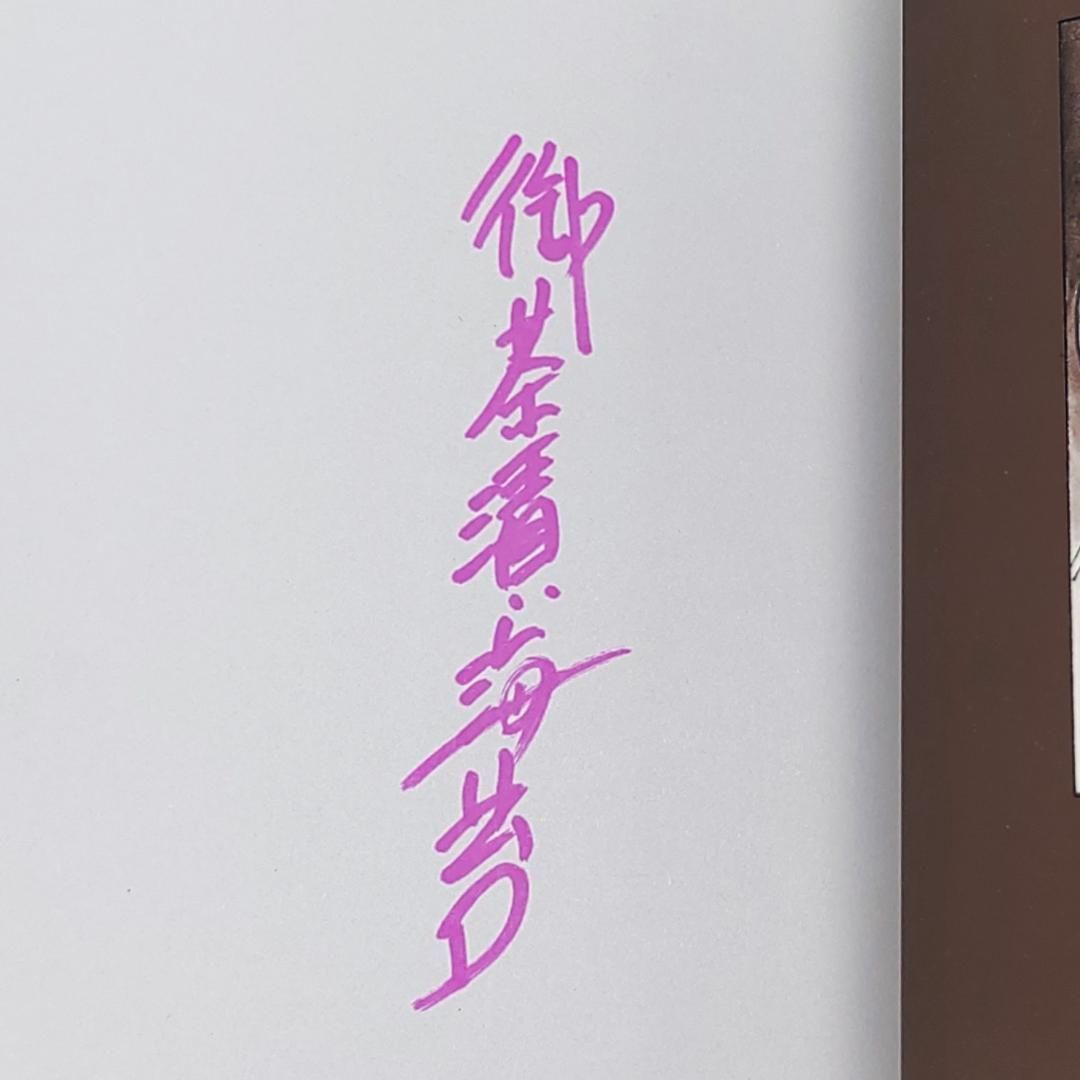 御茶漬海苔